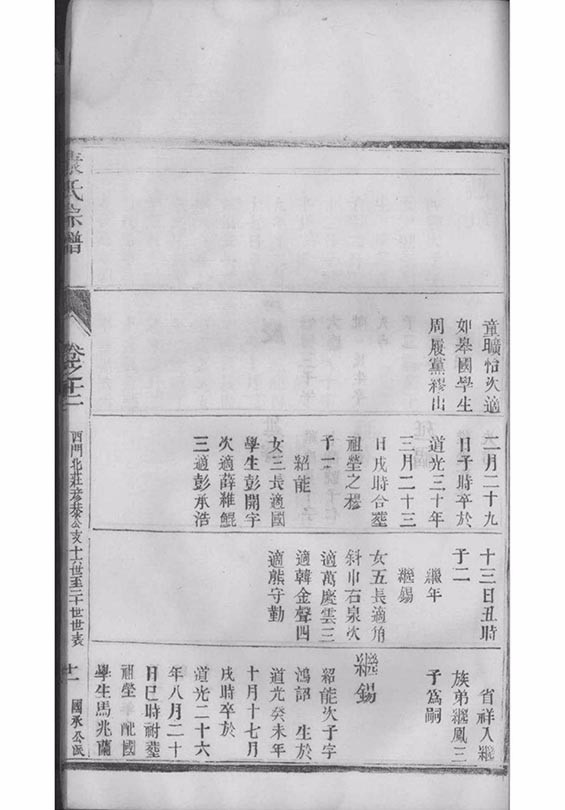 童曠怡次適
如皋國學生
周履黨繆出
二月二十九
日子時卒於
道光三十年
三月二十三
日戌時合塟
祖塋之穆
子一
紹能
女三長適國
學生彭開字
次適薛維鯤
三適彭承浩
十三日丑時
子二
繼年
繼錫
女五長適角
斜巾石泉次
適萬慶雲三
適韓金聲四
適熊守勤
省祥入繼
族弟繼鳳三
子爲嗣
繼錫
紹能次子字
鴻 生於
道光癸未年
十月十七月
戌時卒於
道光二十六
年八月二十
日巳時祔塟
祖塋 配國
學生馬兆蘭
氏宗譜
卷之
西門北莊彥恭公支十六世至二十世世表
國承公派